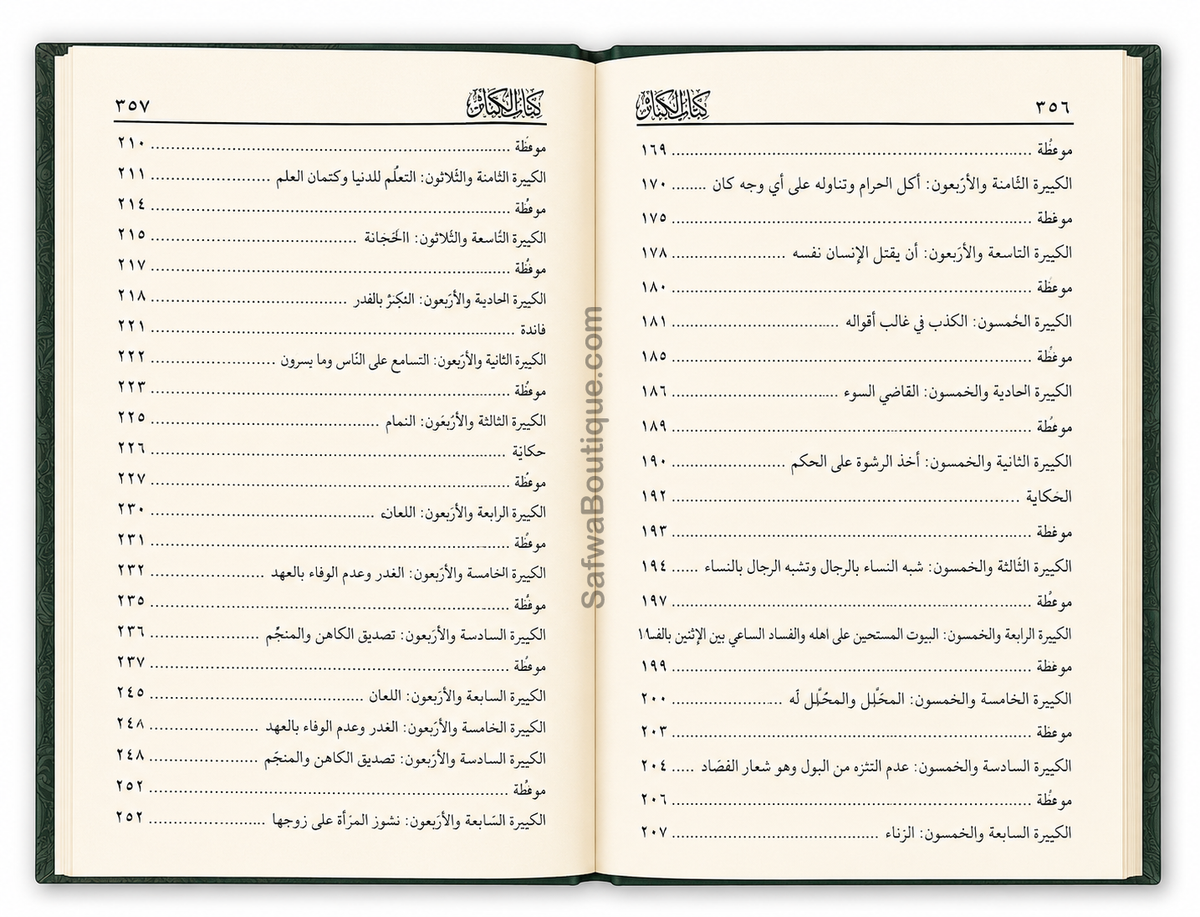 ٣٥٦
كتاب الكبائر
موعظة ........ ١٦٩
الكبيرة الثامنة والأربعون: أكل الحرام وتناوله على أي وجه كان ........ ١٧٠
موعظة ........ ١٧٥
الكبيرة التاسعة والأربعون: أن يقتل الإنسان نفسه ........ ١٧٨
موعظة ........ ١٨٠
الكبيرة الخمسون: الكذب في غالب أقواله ........ ١٨١
موعظة ........ ١٨٥
الكبيرة الحادية والخمسون: القاضي السوء ........ ١٨٦
موعظة ........ ١٨٩
الكبيرة الثانية والخمسون: أخذ الرشوة على الحكم ........ ١٩٠
الحكاية ........ ١٩٢
موعظة ........ ١٩٣
الكبيرة الثالثة والخمسون: شبه النساء بالرجال وتشبه الرجال بالنساء ........ ١٩٤
موعظة ........ ١٩٧
الكبيرة الرابعة والخمسون: البيوت المستحين على اهله والفساد الساعي بين الإثنين
موعظة ........ ١٩٩
الكبيرة الخامسة والخمسون: المحلل والمحلل له ........ ٢٠٠
موعظة ........ ٢٠٣
الكبيرة السادسة والخمسون: عدم التنزه من البول وهو شعار ........ ٢٠٤
موعظة ........ ٢٠٦
الكبيرة السابعة والخمسون: الرناء ........ ٢٠٧
كتاب الكبائر
٣٥٧
موعظة ........ ٢١٠
الكبيرة الثامنة والثلاثون: التعلم للدنيا وكتمان العلم ........ ٢١١
موعظة ........ ٢١٤
الكبيرة التاسعة والثلاثون: ........ ٢١٥
موعظة ........ ٢١٧
الكبيرة الحادية والأربعون: ........ ٢١٨
فائدة ........ ٢٢١
الكبيرة الثانية والأربعون: التسامع على الناس وما يسرون ........ ٢٢٢
موعظة ........ ٢٢٣
الكبيرة الثالثة والأربعون: النمام ........ ٢٢٥
حكاية ........ ٢٢٦
موعظة ........ ٢٢٧
الكبيرة الرابعة والأربعون: اللعان ........ ٢٣٠
موعظة ........ ٢٣١
الكبيرة الخامسة والأربعون: الغدر وعدم الوفاء بالعهد ........ ٢٣٢
موعظة ........ ٢٣٥
الكبيرة السادسة والأربعون: تصديق الكاهن والمنجم ........ ٢٣٦
موعظة ........ ٢٣٧
الكبيرة السابعة والأربعون: اللعان ........ ٢٤٥
الكبيرة الخامسة والأربعون: الغدر وعدم الوفاء بالعهد ........ ٢٤٨
الكبيرة السادسة والأربعون: تصديق الكاهن والمنجم ........ ٢٤٨
موعظة ........ ٢٥٢
الكبيرة السابعة والأربعون: نشوز المرأة على زوجها ........ ٢٥٢
SafwaBoutique.com